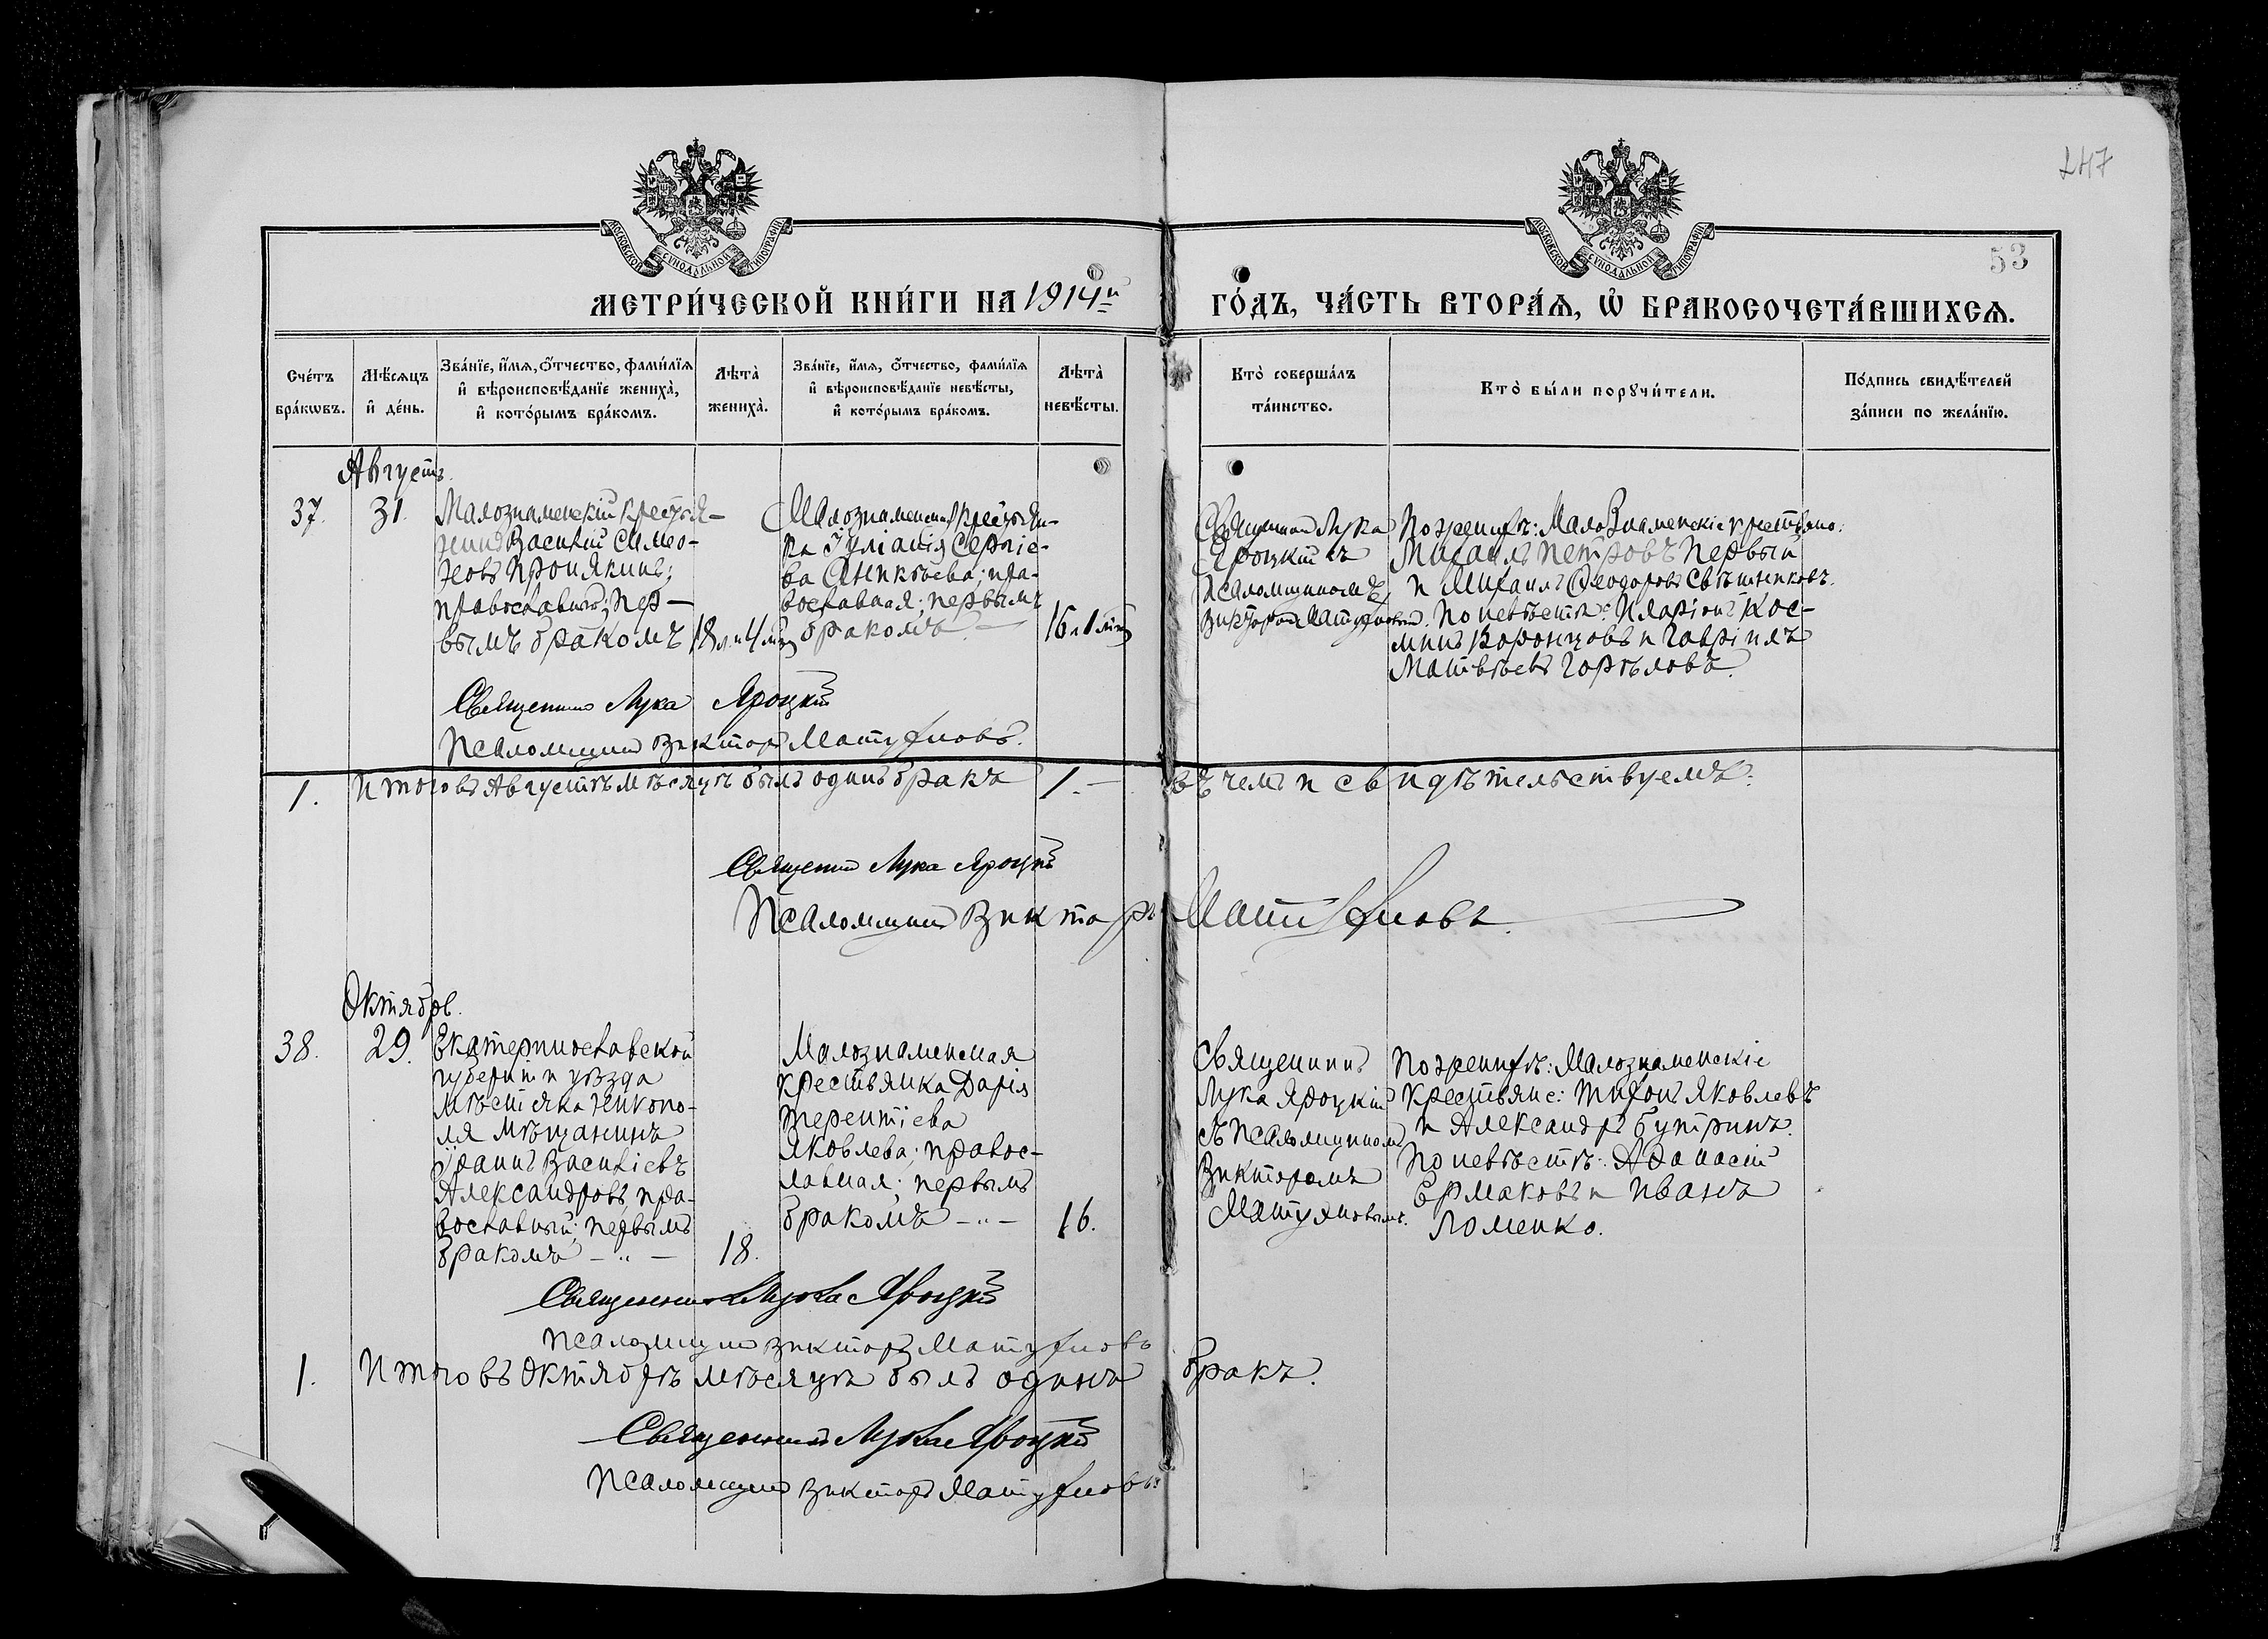 247
53
МОСКОВСКОЙ СѴНОДАЛЬНОЙ ТИПОГРАФІИ
МОСКОВСКОЙ СѴНОДАЛЬНОЙ ТИПОГРАФІИ
МЕТРИ́ЧЕСКОЙ КНИ́ГИ НА 1914й ГО́ДЪ, ЧА́СТЬ ВТОРА́Ѧ, Ѡ҆ БРАКОСОЧЕТА́ВШИХСѦ.
Сче́тъ
бра́кѡвъ.
Мѣ́сѧцъ
и҆ де́нь.
Зва́нїе, и҆́мѧ, ѻ҆́тчество, фами́лїѧ
и҆ вѣроисповѣ́данїе жениха̀,
и҆ кото́рымъ бра́комъ.
Лѣта̀
жениха̀.
Зва́нїе, и҆́мѧ, ѻ҆́тчество, фами́лїѧ
и҆ вѣроисповѣ́данїе невѣ́сты,
и҆ кото́рымъ бра́комъ.
Лѣта̀
невѣ́сты.
Кто̀ соверша́лъ
та́инство.
Кто̀ бы́ли порꙋчи́тели.
По́дпись свидѣ́телей
за́писи по жела́нїю.
Августъ.
37.
31.
Малознаменскій крестья-
нинъ Василій Симео-
новъ Пронякинъ;
православный; пер-
вымъ бракомъ
18 л. и 4 мѣс
Малознаменская крестьян-
ка Іуліанія Сергіе-
ва Аникѣева; пра-
вославная; первымъ
бракомъ. —
16 и 1 мѣс
Священникъ Лука
Яроцкій съ
псаломщикомъ
Викторомъ Матухновымъ.
По женихѣ: Мало Знаменскіе крестьяне:
Михаилъ Петровъ Первый
и Михаилъ Ѳеодоровъ Свѣшниковъ.
По невѣстѣ: Иларіонъ Кос-
минъ Воронцовъ и Гавріилъ
Матвѣевъ Горѣловъ.
Священникъ Лука Яроцкій
Псаломщикъ Викторъ Матухновъ.
1. Итого въ Августѣ мѣсяцѣ былъ одинъ бракъ 1. — Въ чемъ и свидѣтельствуемъ.
Священникъ Лука Яроцкій
Псаломщикъ Викторъ Матухновъ.
Октябрь.
38.
29.
Екатеринославской
губерніи и уѣзда
мѣстечка Никопо-
ля мѣщанинъ
Іоаннъ Василіевъ
Александровъ, пра-
вославный; первымъ
бракомъ — " —
18.
Малознаменская
крестьянка Дарія
Терентіева
Яковлева; правос-
лавная; первымъ
бракомъ — " —
16.
Священникъ
Лука Яроцкій
съ псаломщикомъ
Викторомъ
Матухновымъ.
По женихѣ: Малознаменскіе
крестьяне: Тихонъ Яковлевъ
и Александръ Бутринъ.
По невѣстѣ: Аѳанасій
Ермаковъ и Иванъ
Ломенко.
Священникъ Лука Яроцкій
Псаломщикъ Викторъ Матухновъ
1. Итого въ Октябрѣ мѣсяцѣ былъ одинъ бракъ.
Священникъ Лука Яроцкій
Псаломщикъ Викторъ Матухновъ.